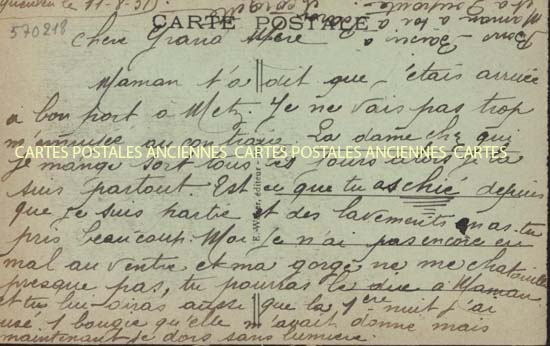 11-8-31
Maman a
570218
CARTE POSTALE
Chere Grand Mère
Maman t'a dit que j'étais arrivée
a bon port a Metz. Je ne vais pas trop
m'ennuyer au contraire. La dame chez qui
je mange sort tous les jours et je la
suis partout. Est ce que tu as chié depuis
que je suis partie et des lavements en as-tu
pris beaucoup. Moi je n'ai pas encore eu
mal au ventre et ma gorge ne me chatouille
presque pas, tu pourras le dire a Maman
et tu lui diras aussi que la 1ère nuit j'ai
usé 1 bougie qu'elle m'avait donné mais
maintenant je dors sans lumière.
CARTES POSTALES ANCIENNES CARTES POSTALES ANCIENNES CARTES
éditeur